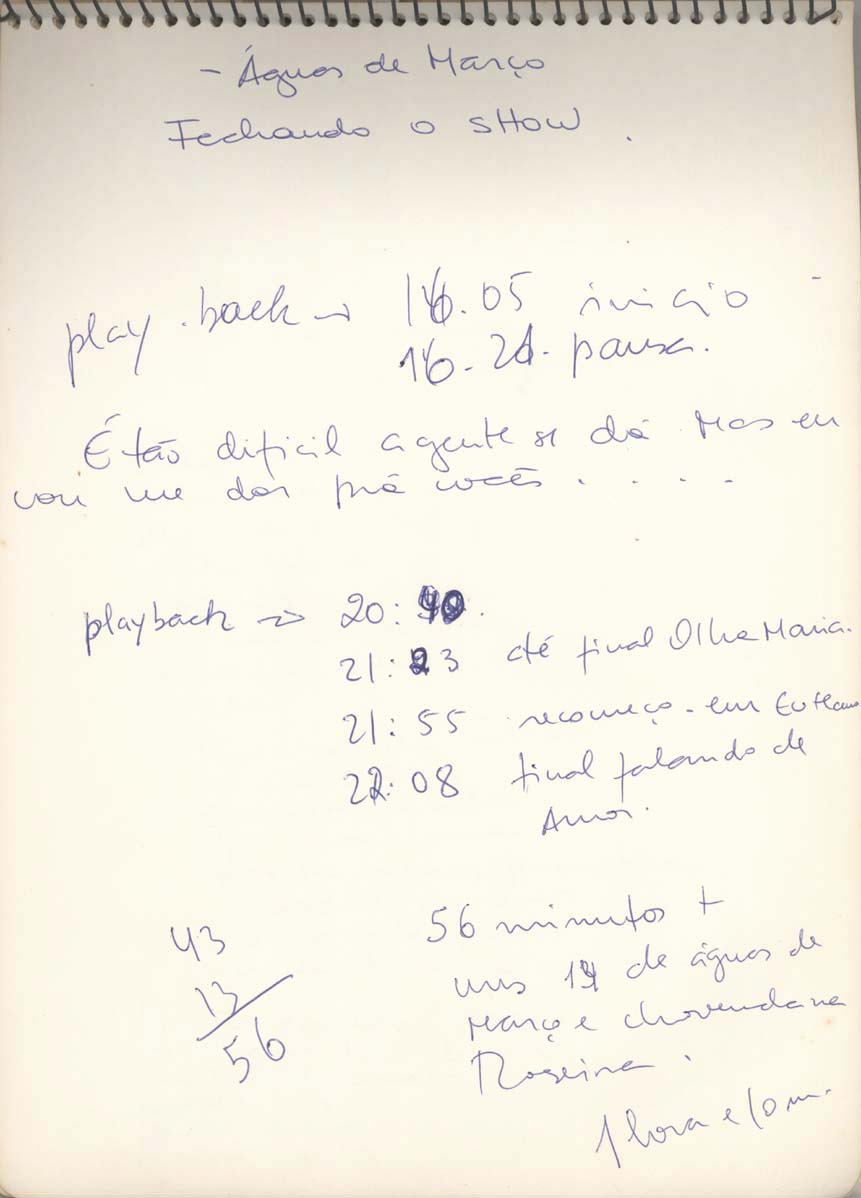 - Águas de Março
Fechando o sHow.
play.back → 16.05 inicio
16-21. pausa.
É tão dificil agente se dá Mas eu
vou me dar prá vocês . . . .
playback → 20:40.
21:23 até final Olha Maria.
21:55 recomeço - em
22:08 final falando de
Amor.
43
13
56
56 minutos +
uns de águas de
Março e chovendo na
Roseira.
1 hora e 10 m.